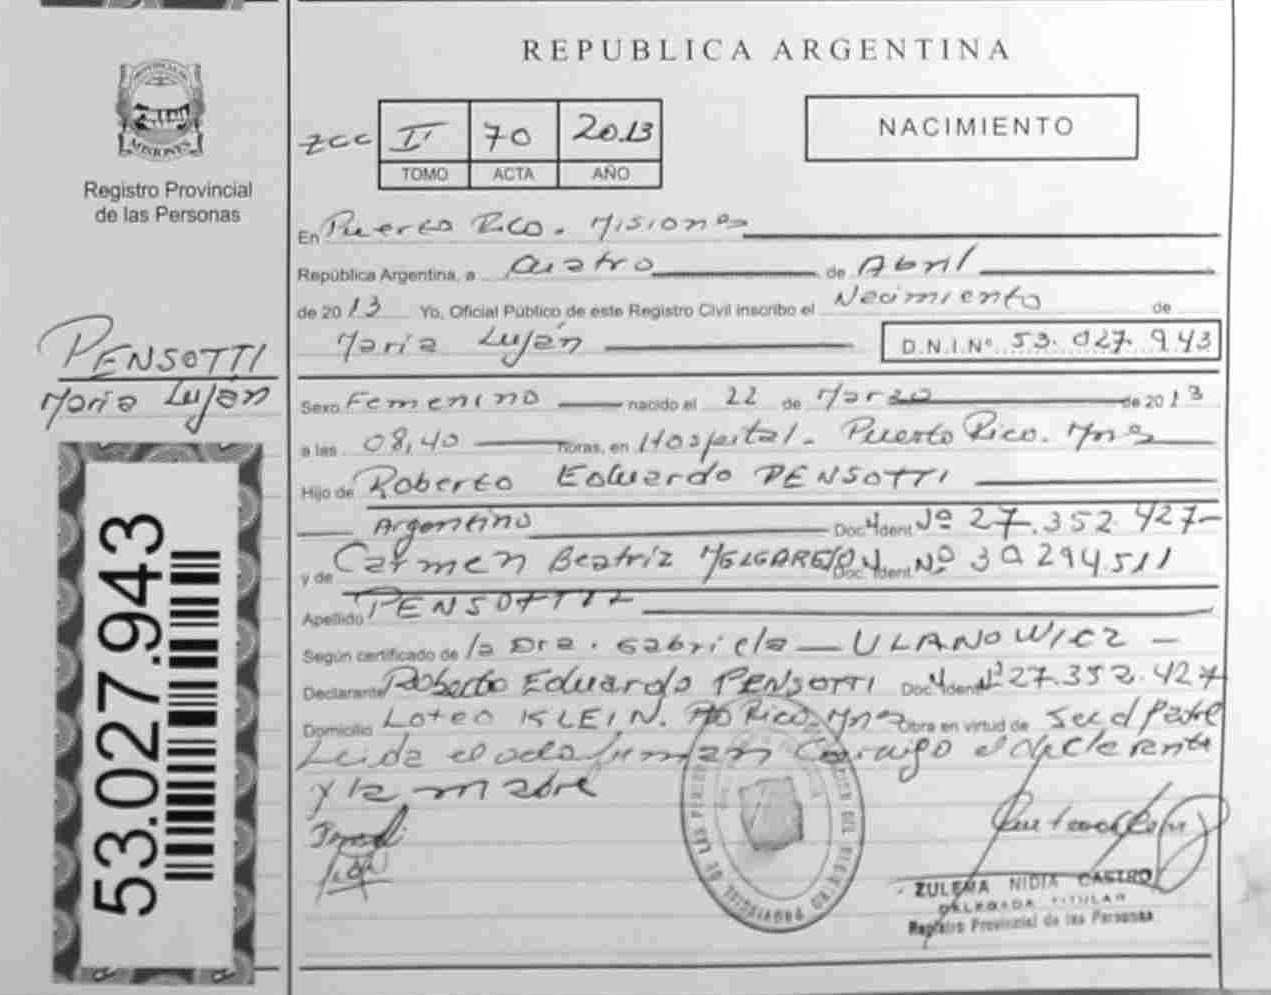 REPUBLICA ARGENTINA
PROVINCIA DE
MISIONES
Registro Provincial
de las Personas
zcc II 70 2013
TOMO ACTA AÑO
NACIMIENTO
En Puerto Rico. Misiones
República Argentina, a cuatro de Abril
de 2013 Yo, Oficial Público de este Registro Civil inscribo el Nacimiento de
Maria Luján D.N.I.Nº 53.027.943
PENSOTTI
Maria Luján
Sexo Femenino nacido el 22 de Marzo de 2013
a las 08,40 horas, en Hospital. Puerto Rico. Mnes
Hijo de Roberto Eduardo PENSOTTI
Argentino Doc. Ident Nº 27.352.427
y de Carmen Beatriz MELGAREJO Doc. Ident Nº 30294.511
Apellido PENSOTTI
Según certificado de la Dra. Gabriela ULANOWICZ
Declarante Roberto Eduardo PENSOTTI Doc. Ident Nº 27.352.427
Domicilio Loteo KLEIN. Pto Rico. Mnes Obra en virtud de ser el Padre
Leida el acta firman conmigo el declarante
y la madre
53.027.943
ZULEMA NIDIA CASTRO
DELEGADA TITULAR
Registro Provincial de las Personas